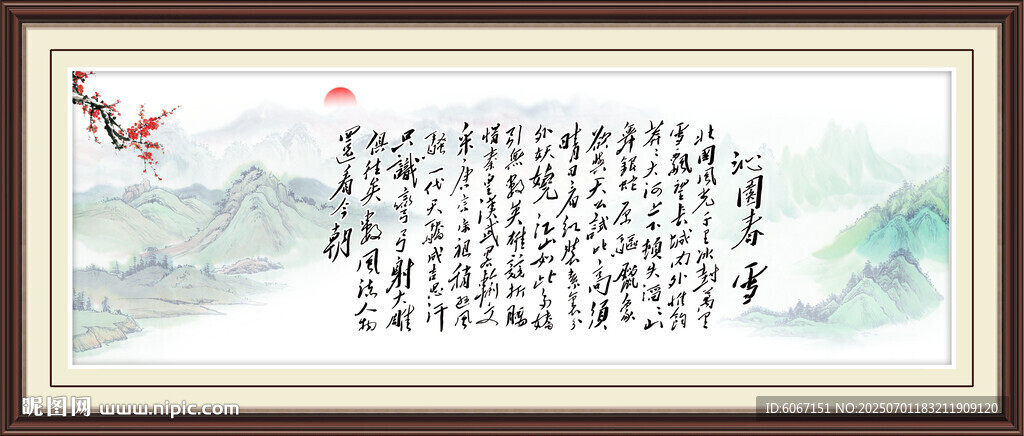 沁園春 雪
北國風光千里冰封萬里
雪飄望长城内外惟餘
莽莽大河上下頓失滔滔山
舞銀蛇原驅臘象
欲與天公試比高須
晴日看红裝素裹分
外妖嬈江山如此多嬌
引無數英雄競折腰
惜秦皇漢武略輸文
采唐宗宋祖稍遜風
騷一代天驕成吉思汗
只識彎弓射大雕
俱往矣數風流人物
還看今朝
昵图网 www.nipic.com
ID:6067151 NO:20250701183211909120